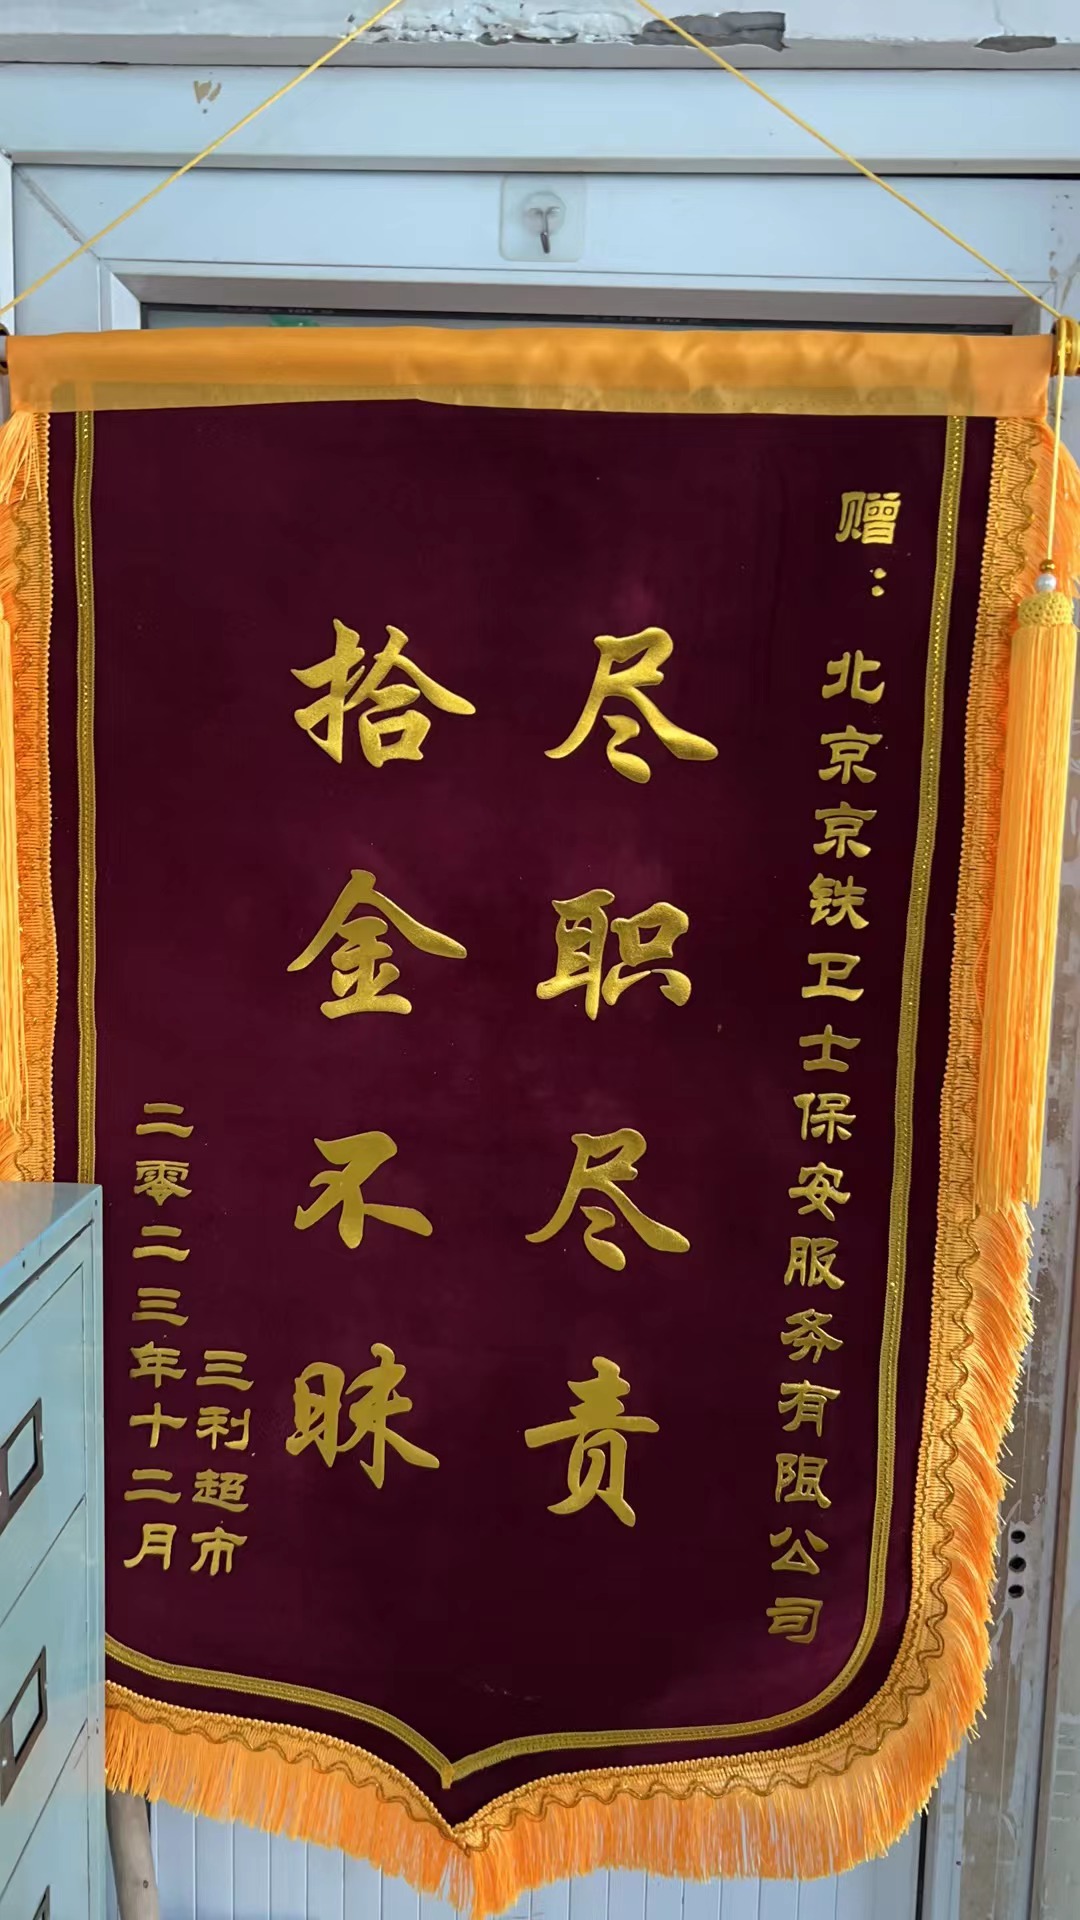 赠：北京京铁卫士保安服务有限公司
尽职尽责
拾金不昧
三利超市
二零二三年十二月